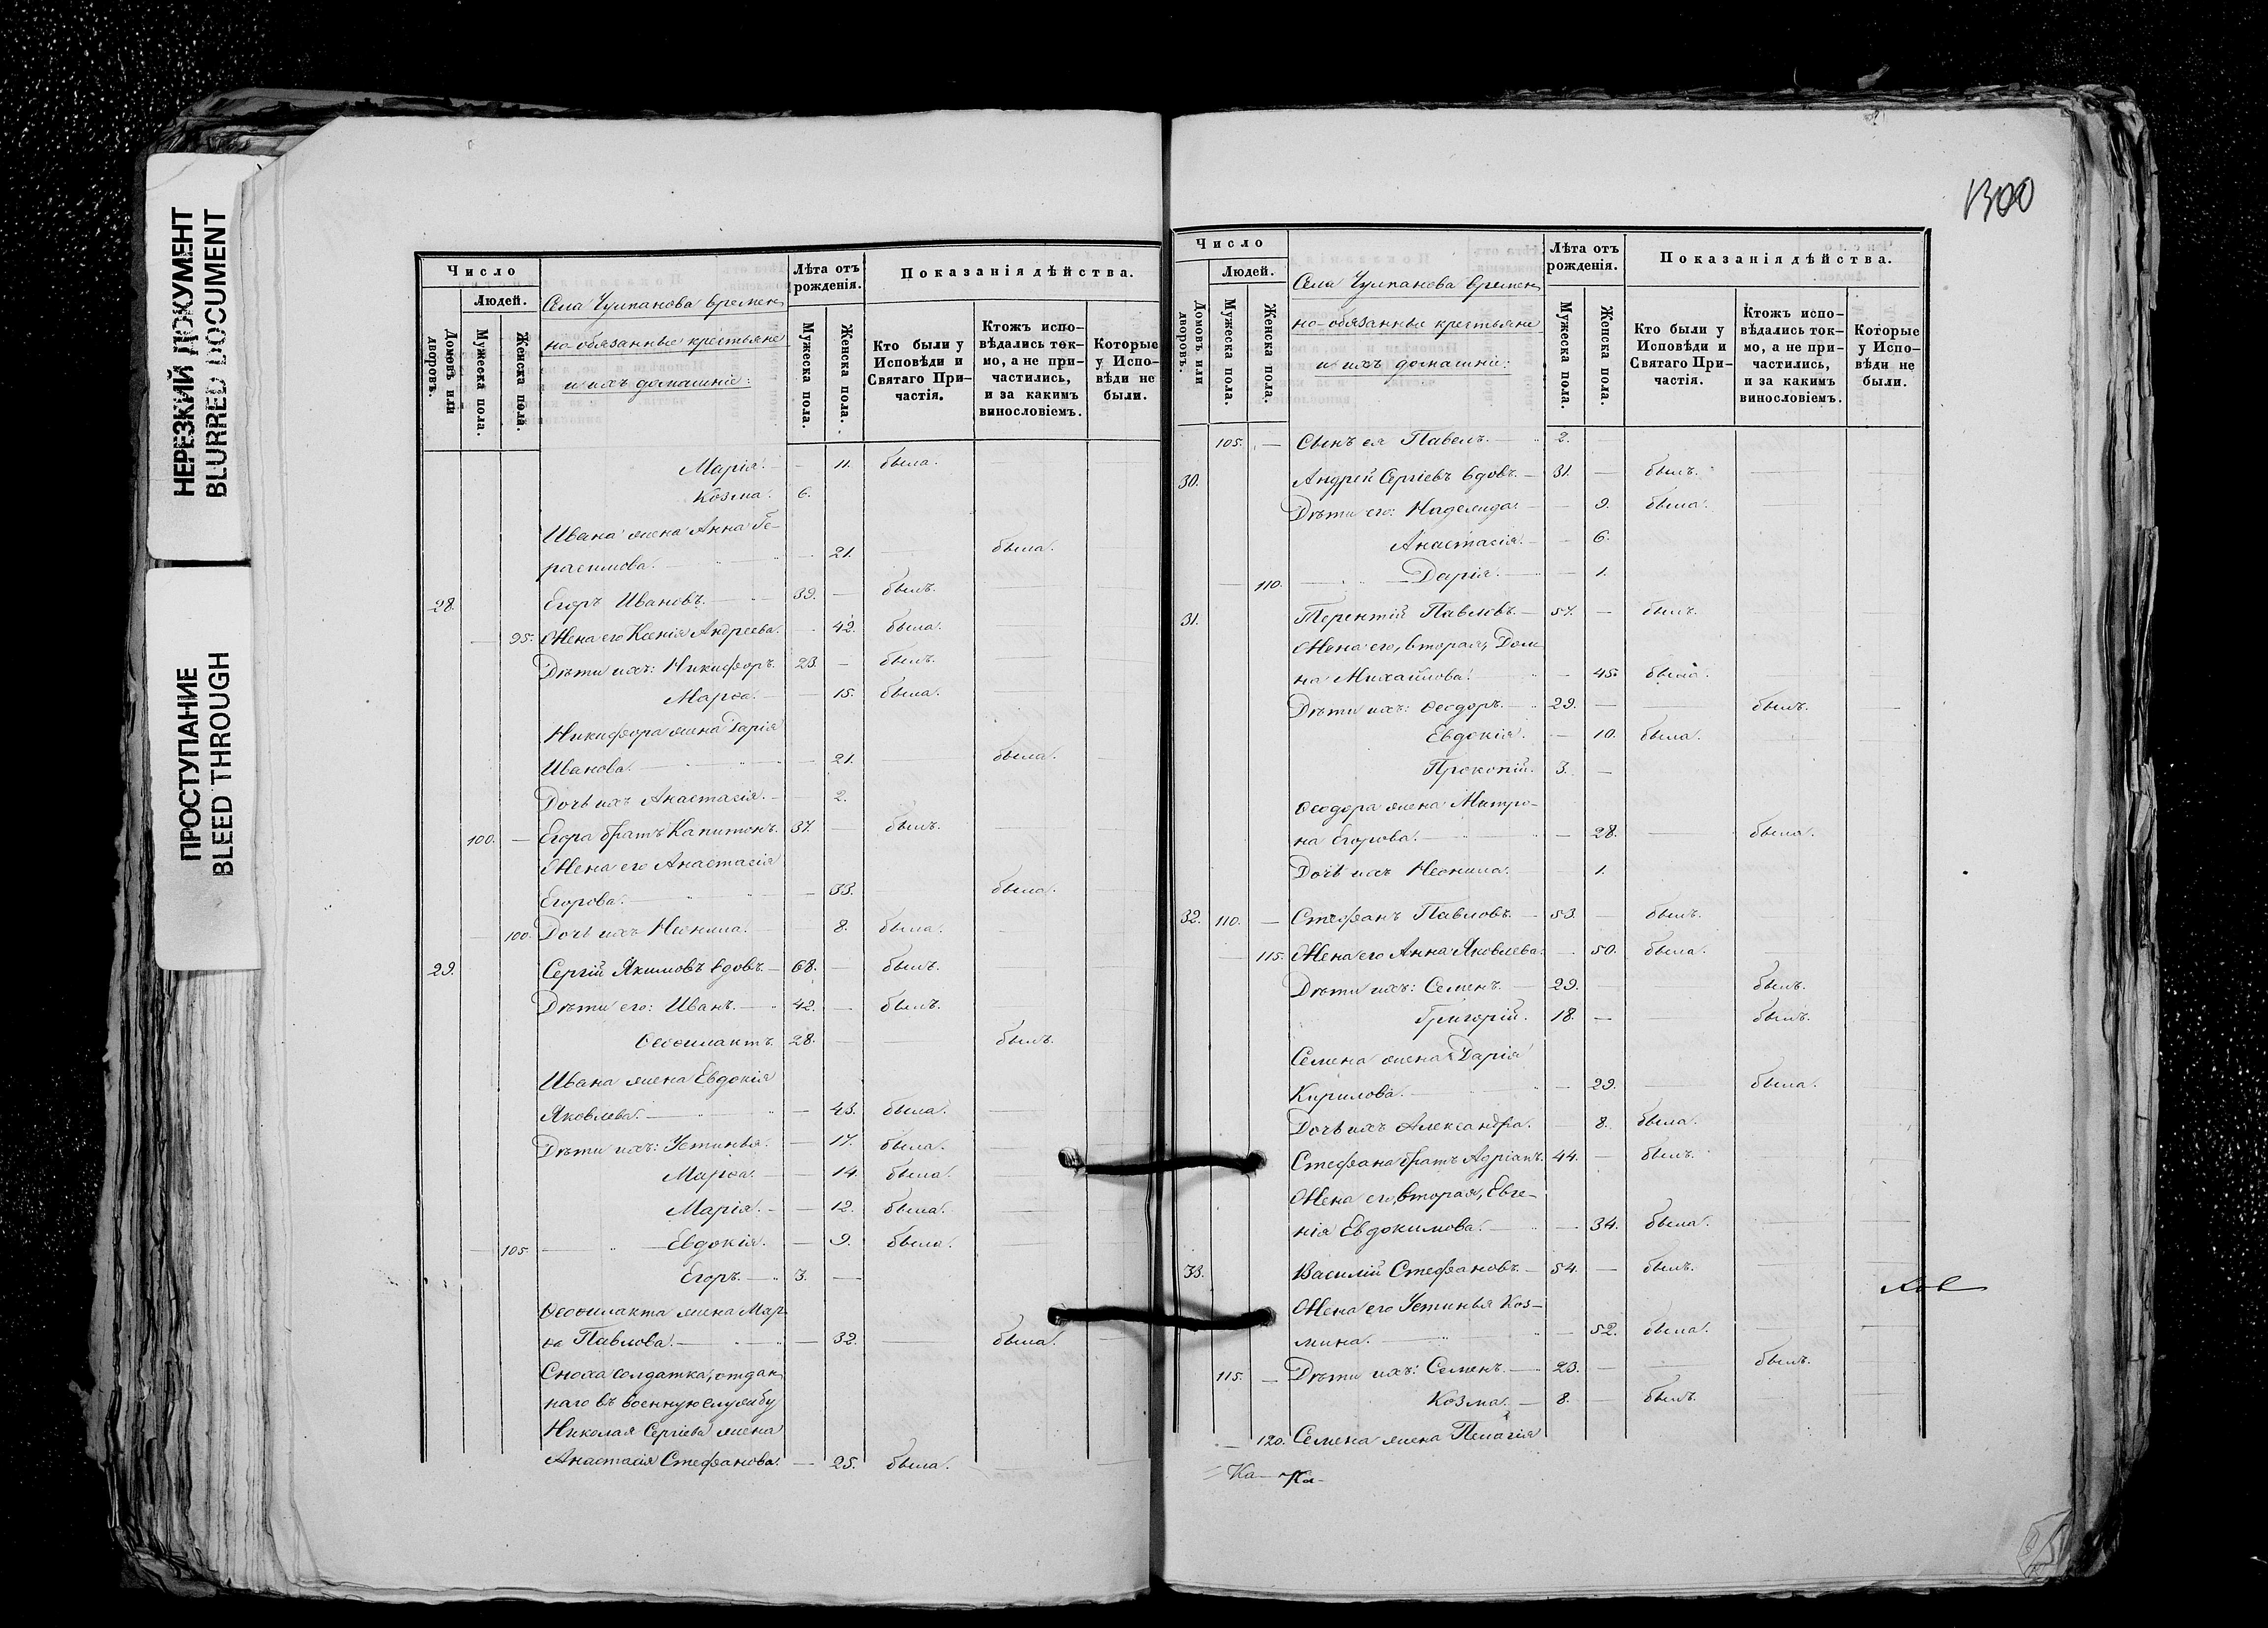 НЕРЕЗКИЙ ДОКУМЕНТ
BLURRED DOCUMENT
ПРОСТУПАНИЕ
BLEED THROUGH
Число
Людей.
Домовъ или дворовъ.
Мужеска пола.
Женска пола.
Села Чулпанова времен
но-обязанные крестьяне
и ихъ домашніе:
Лѣта отъ рожденія.
Мужеска пола.
Женска пола.
Показанія дѣйства.
Кто были у Исповѣди и Святаго Причастія.
Ктожъ исповѣдались токмо, а не причастились, и за какимъ винословіемъ.
Которые у Исповѣди не были.
Марія. — 11. была.
Козма. 6.
Ивана жена Анна Ге-
расимова. — 21. — была.
28. Егоръ Ивановъ. — 39. — былъ.
— 95. Жена его Ксенія Андреева. — 42. была.
Дѣти ихъ: Никифоръ. 23. — былъ.
Марѳа. — 15. была.
Никифора жена Дарія
Иванова. — 21. была.
Дочь ихъ Анастасія. — 2.
100. — Егора братъ Капитонъ. 37. — былъ.
Жена его Анастасія
Егорова. — 33. была.
— 100. Дочь ихъ Неонила. 8. была.
29. Сергій Якимовъ вдовъ. — 68. — былъ.
Дѣти его: Иванъ. — 42. — былъ.
Ѳеофилактъ. 28. — — былъ.
Ивана жена Евдокія
Яковлева. — 43. была.
Дѣти ихъ: Устинья. — 17. была.
Марѳа. — 14. была.
Марія. — 12. была.
— 105. — Евдокія. — 9. была.
Егоръ. — 3. —
Ѳеофилакта жена Мар-
ѳа Павлова. — 32. была.
Сноха солдатка, отдан
наго въ военную службу
Николая Сергіева жена
Анастасія Стефанова. — 25. была.
1300
Число
Людей.
Домовъ или дворовъ.
Мужеска пола.
Женска пола.
Села Чулпанова времен
но-обязанные крестьяне
и ихъ домашніе:
Лѣта отъ рожденія.
Мужеска пола.
Женска пола.
Показанія дѣйства.
Кто были у Исповѣди и Святаго Причастія.
Ктожъ исповѣдались токмо, а не причастились, и за какимъ винословіемъ.
Которые у Исповѣди не были.
105. — Сынъ ея Павелъ. — 2.
30. Андрей Сергіевъ вдовъ. — 31. — былъ.
Дѣти его: Надежда. — 9. была.
Анастасія. — 6.
— 110. — Дарія. — 1.
31. Терентій Павловъ. — 57. — былъ.
Жена его, вторая, Дом
на Михайлова. — 45. была.
Дѣти ихъ: Ѳеодоръ. — 29. — былъ.
Евдокія. — 10. была.
Прокопій. 3. —
Ѳеодора жена Матро-
на Егорова. — 28. — была.
Дочь ихъ Неонила. 1.
32. 110. — Стефанъ Павловъ. — 53. — былъ.
— 115. Жена его Анна Яковлева. — 50. была.
Дѣти ихъ: Семенъ. — 29. — былъ.
Григорій. 18. — былъ.
Семена жена Дарія
Кирилова. — 29. — была.
Дочь ихъ Александра. — 8. была.
Стефана братъ Адріанъ. 44. — былъ.
Жена его, вторая, Евге-
нія Евдокимова. — 34. была.
33. Василій Стефановъ. — 54. — былъ.
Жена его Устинья Коз-
мина. — 52. была.
115. — Дѣти ихъ: Семенъ. — 23. — былъ.
Козма. — 8. — былъ.
— 120. Семена жена Пелагія